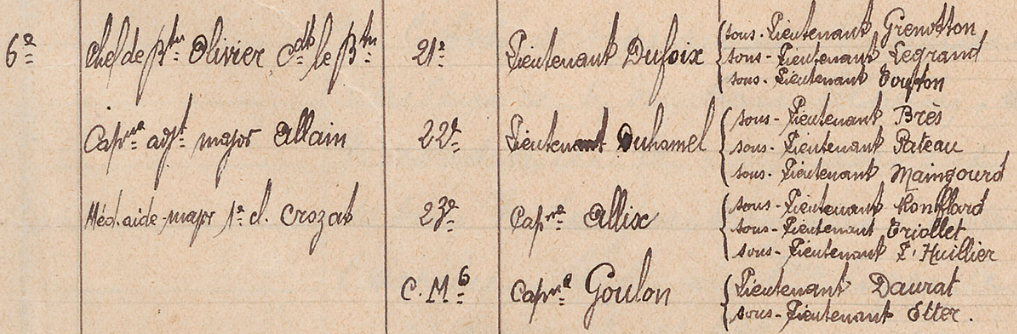 6e Chef de Btn Olivier Cdt le Btn 21e Lieutenant Dufoix sous-Lieutenant Grenotton
sous-Lieutenant Legrand
sous-Lieutenant
Capne adjt major Allain 22e Lieutenant Duhamel sous-Lieutenant Brès
sous-Lieutenant Pateau
sous-Lieutenant Maingourd
Méd. aide-major 1e cl. Crozat 23e Capne Allix sous-Lieutenant
sous-Lieutenant Eriollet
sous-Lieutenant L'Huillier
C.M 6 Capne Goulon Lieutenant Daurat
sous-Lieutenant Etter.